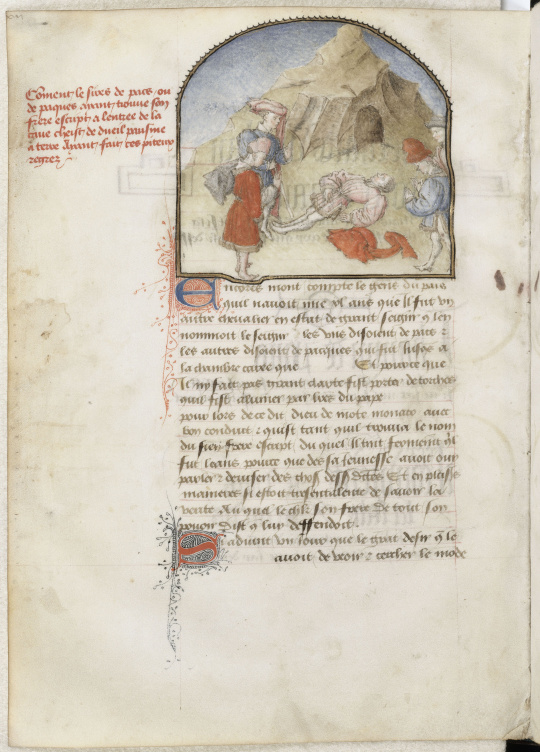 Coment le sires de pacs ou
de paques ayant trouve son
frere escript a lentree de la
cave cheist de dueil pausme
a terre Ayant fait ces piteux
regrez
Encores mont compte le gens du pais
quil navoit mie xl ans que il fut un
autre chevalier en estat de grant seigñr q len
nommoit le seigñr les uns disoient de pacs 
les autres disoient de pacques qui fut jusqs a
la chambre cavee que Et pource que
il ny fait pas grant clarte fist porter de torches
quil fist alumer par les du pape
pour lors de ce dit dieu de mote monaco avec
bon conduit quist tant quil trouva le nom
du sien frere escript du quel il tint fermemt ql
fut leans pource que des sa jeunesse avoit ouy
parler deviser des choses dess dites Et en plusrs
manieres si estoit tresentalente de savoir la
verite Au quel le chlr son frere de tout son
povoir dist q luy deffendoit
Sadvint un jour que le grāt desir q le
avoit de veoir cercher le mōde